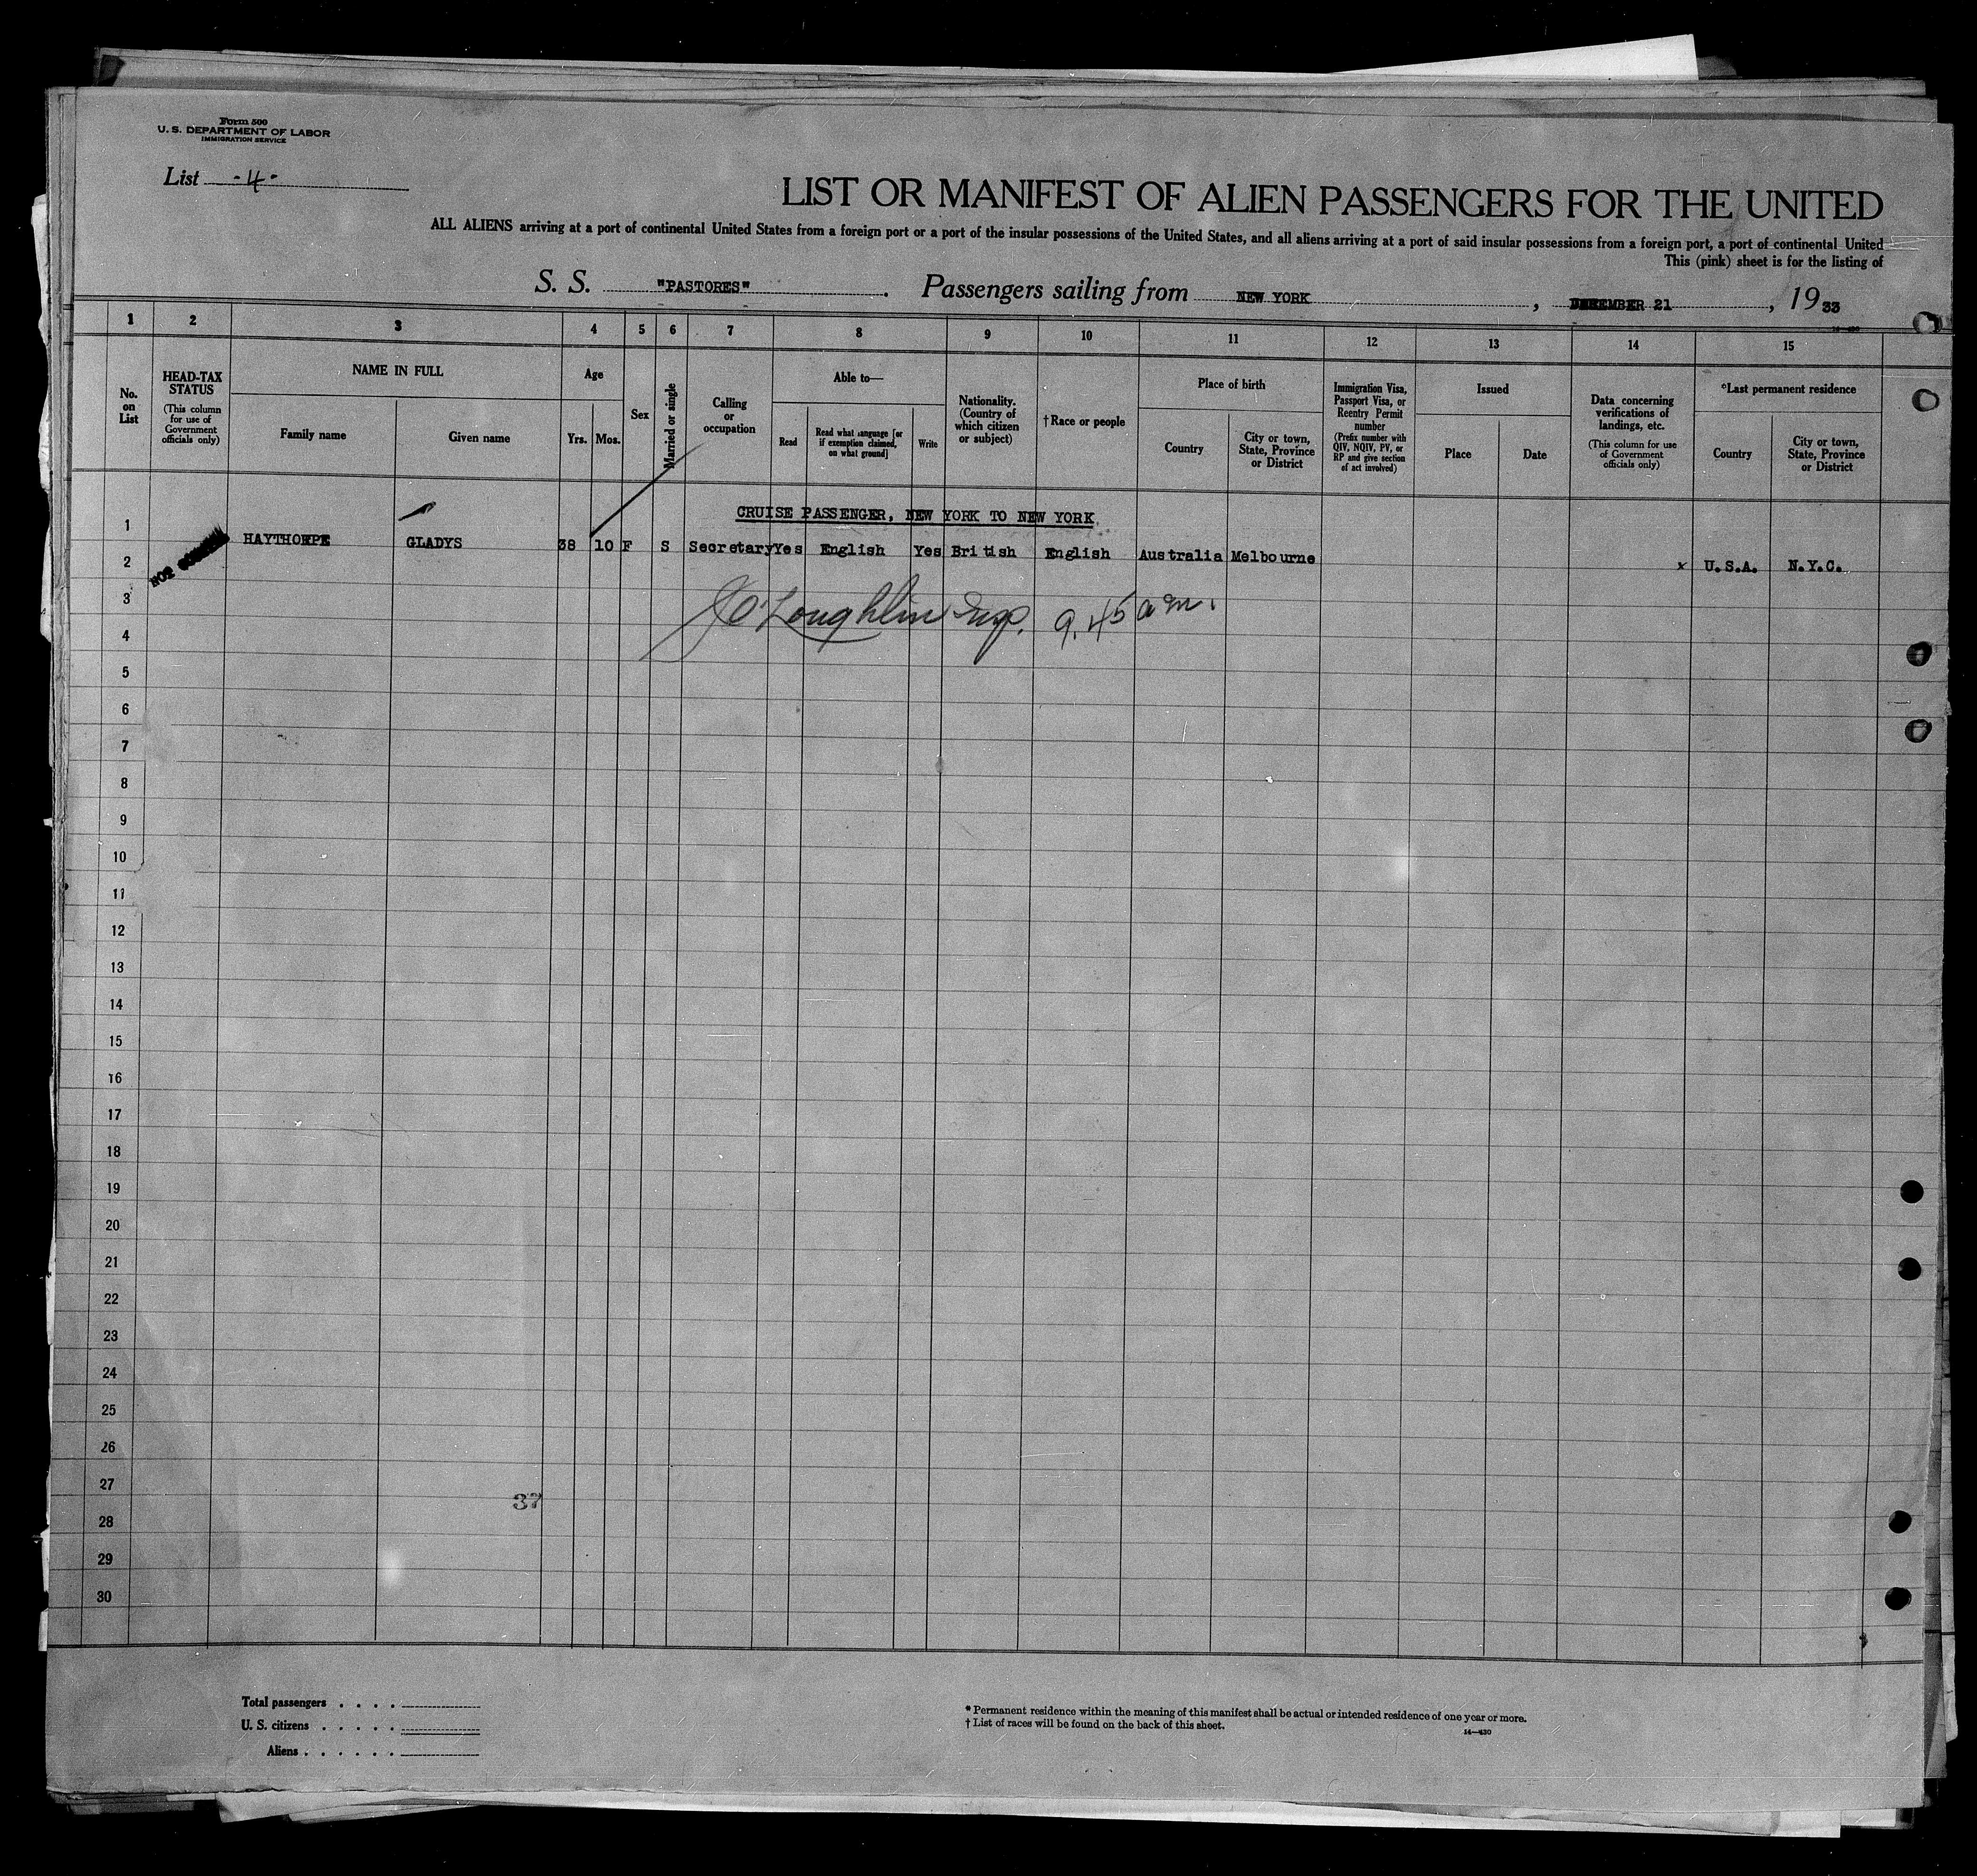 Form 500
U. S. DEPARTMENT OF LABOR
IMMIGRATION SERVICE
List -4-
LIST OR MANIFEST OF ALIEN PASSENGERS FOR THE UNITED
ALL ALIENS arriving at a port of continental United States from a foreign port or a port of the insular possessions of the United States, and all aliens arriving at a port of said insular possessions from a foreign port, a port of continental United
This (pink) sheet is for the listing of
S. S. "PASTORES". Passengers sailing from NEW YORK, DECEMBER 21, 1933
1 2 3 4 5 6 7 8 9 10 11 12 13 14 15
No. on List
HEAD-TAX STATUS
(This column for use of Government officials only)
NAME IN FULL
Family name
Given name
Age
Yrs. Mos.
Sex
Married or single
Calling or occupation
Able to—
Read
Read what language [or if exemption claimed, on what ground]
Write
Nationality. (Country of which citizen or subject)
†Race or people
Place of birth
Country
City or town, State, Province or District
Immigration Visa, Passport Visa, or Reentry Permit number
(Prefix number with QIV, NQIV, PV, or RP and give section of act involved)
Issued
Place
Date
Data concerning verifications of landings, etc.
(This column for use of Government officials only)
*Last permanent residence
Country
City or town, State, Province or District
1
CRUISE PASSENGER, NEW YORK TO NEW YORK
NOT HAYTHORPE GLADYS 38 10 F S Secretary Yes English Yes British English Australia Melbourne x U.S.A. N.Y.C.
2
3
J O'Loughlin Insp. 9.45 am.
4
5
6
7
8
9
10
11
12
13
14
15
16
17
18
19
20
21
22
23
24
25
26
27
37
28
29
30
Total passengers . . . .
U. S. citizens . . . . .
Aliens . . . . . .
* Permanent residence within the meaning of this manifest shall be actual or intended residence of one year or more.
† List of races will be found on the back of this sheet.
14—430